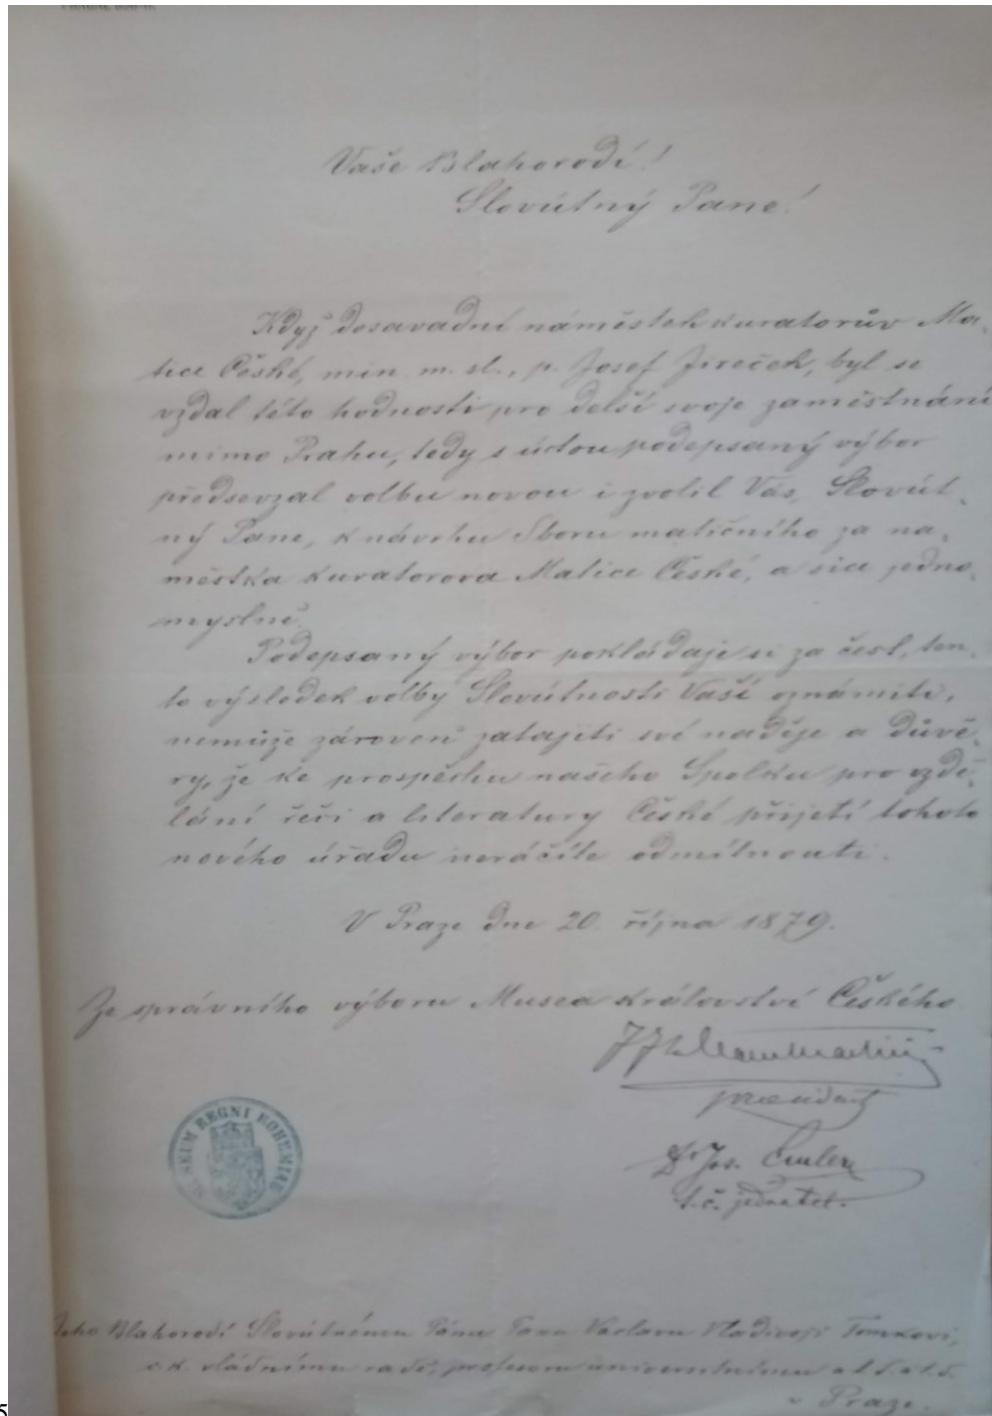 Vaše Blahorodí!
Slovútný Pane!
Když dosavadní náměstek kuratorův Ma-
tice České, min. m. sl., p. Josef Jireček, byl se
vzdal této hodnosti pro delší svoje zaměstnání
mimo Prahu, tedy s úctou podepsaný výbor
předsevzal volbu novou i zvolil Vás, Slovút-
ný Pane, k návrhu Sboru matičního za ná-
městka kuratorova Matice České, a sice jedno-
myslně.
Podepsaný výbor pokládaje si za čest, ten-
to výsledek volby Slovútnosti Vaší oznámiti,
nemůže zároveň zatajiti své naděje a důvě-
ry, že ke prospěchu našeho Spolku pro vzdě-
lání řeči a literatury České přijetí tohoto
nového úřadu neráčíte odmítnouti.
V Praze dne 20. října 1879.
Ze správního výboru Musea království Českého
president
Dr Jos. Emler
t.č. jednatel.
MUSEUM REGNI BOHEMIAE
Jeho Blahorodí Slovútnému Pánu Panu Václavu Vladivoji Tomkovi,
c.k. vládnímu radovi, profesoru universitnímu a t.d. a t.d.
v Praze.
5